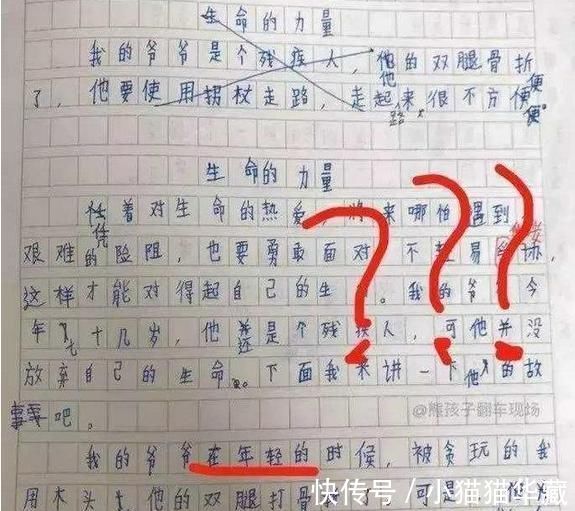 生命的力量
我的爷爷是个残疾人,他的双腿骨折
他
便
了,他要使用拐杖走路,走起来很不方便
路
便。
生命的力量
着对生命的热爱,将来哪怕遇到
凭
艰难的险阻,也要勇敢面对,不轻易
这样才能对得起自己的生。我的爷今
年七十几岁,他还是个残疾人,可他并没
放弃自己的生命。下面我来讲一下他的故
事吧。
@熊孩子翻车现场
我的爷爷在年轻的时候,被贪玩的我
用木头 他的双腿打骨 了,可是
快传号/小猫猫华藏